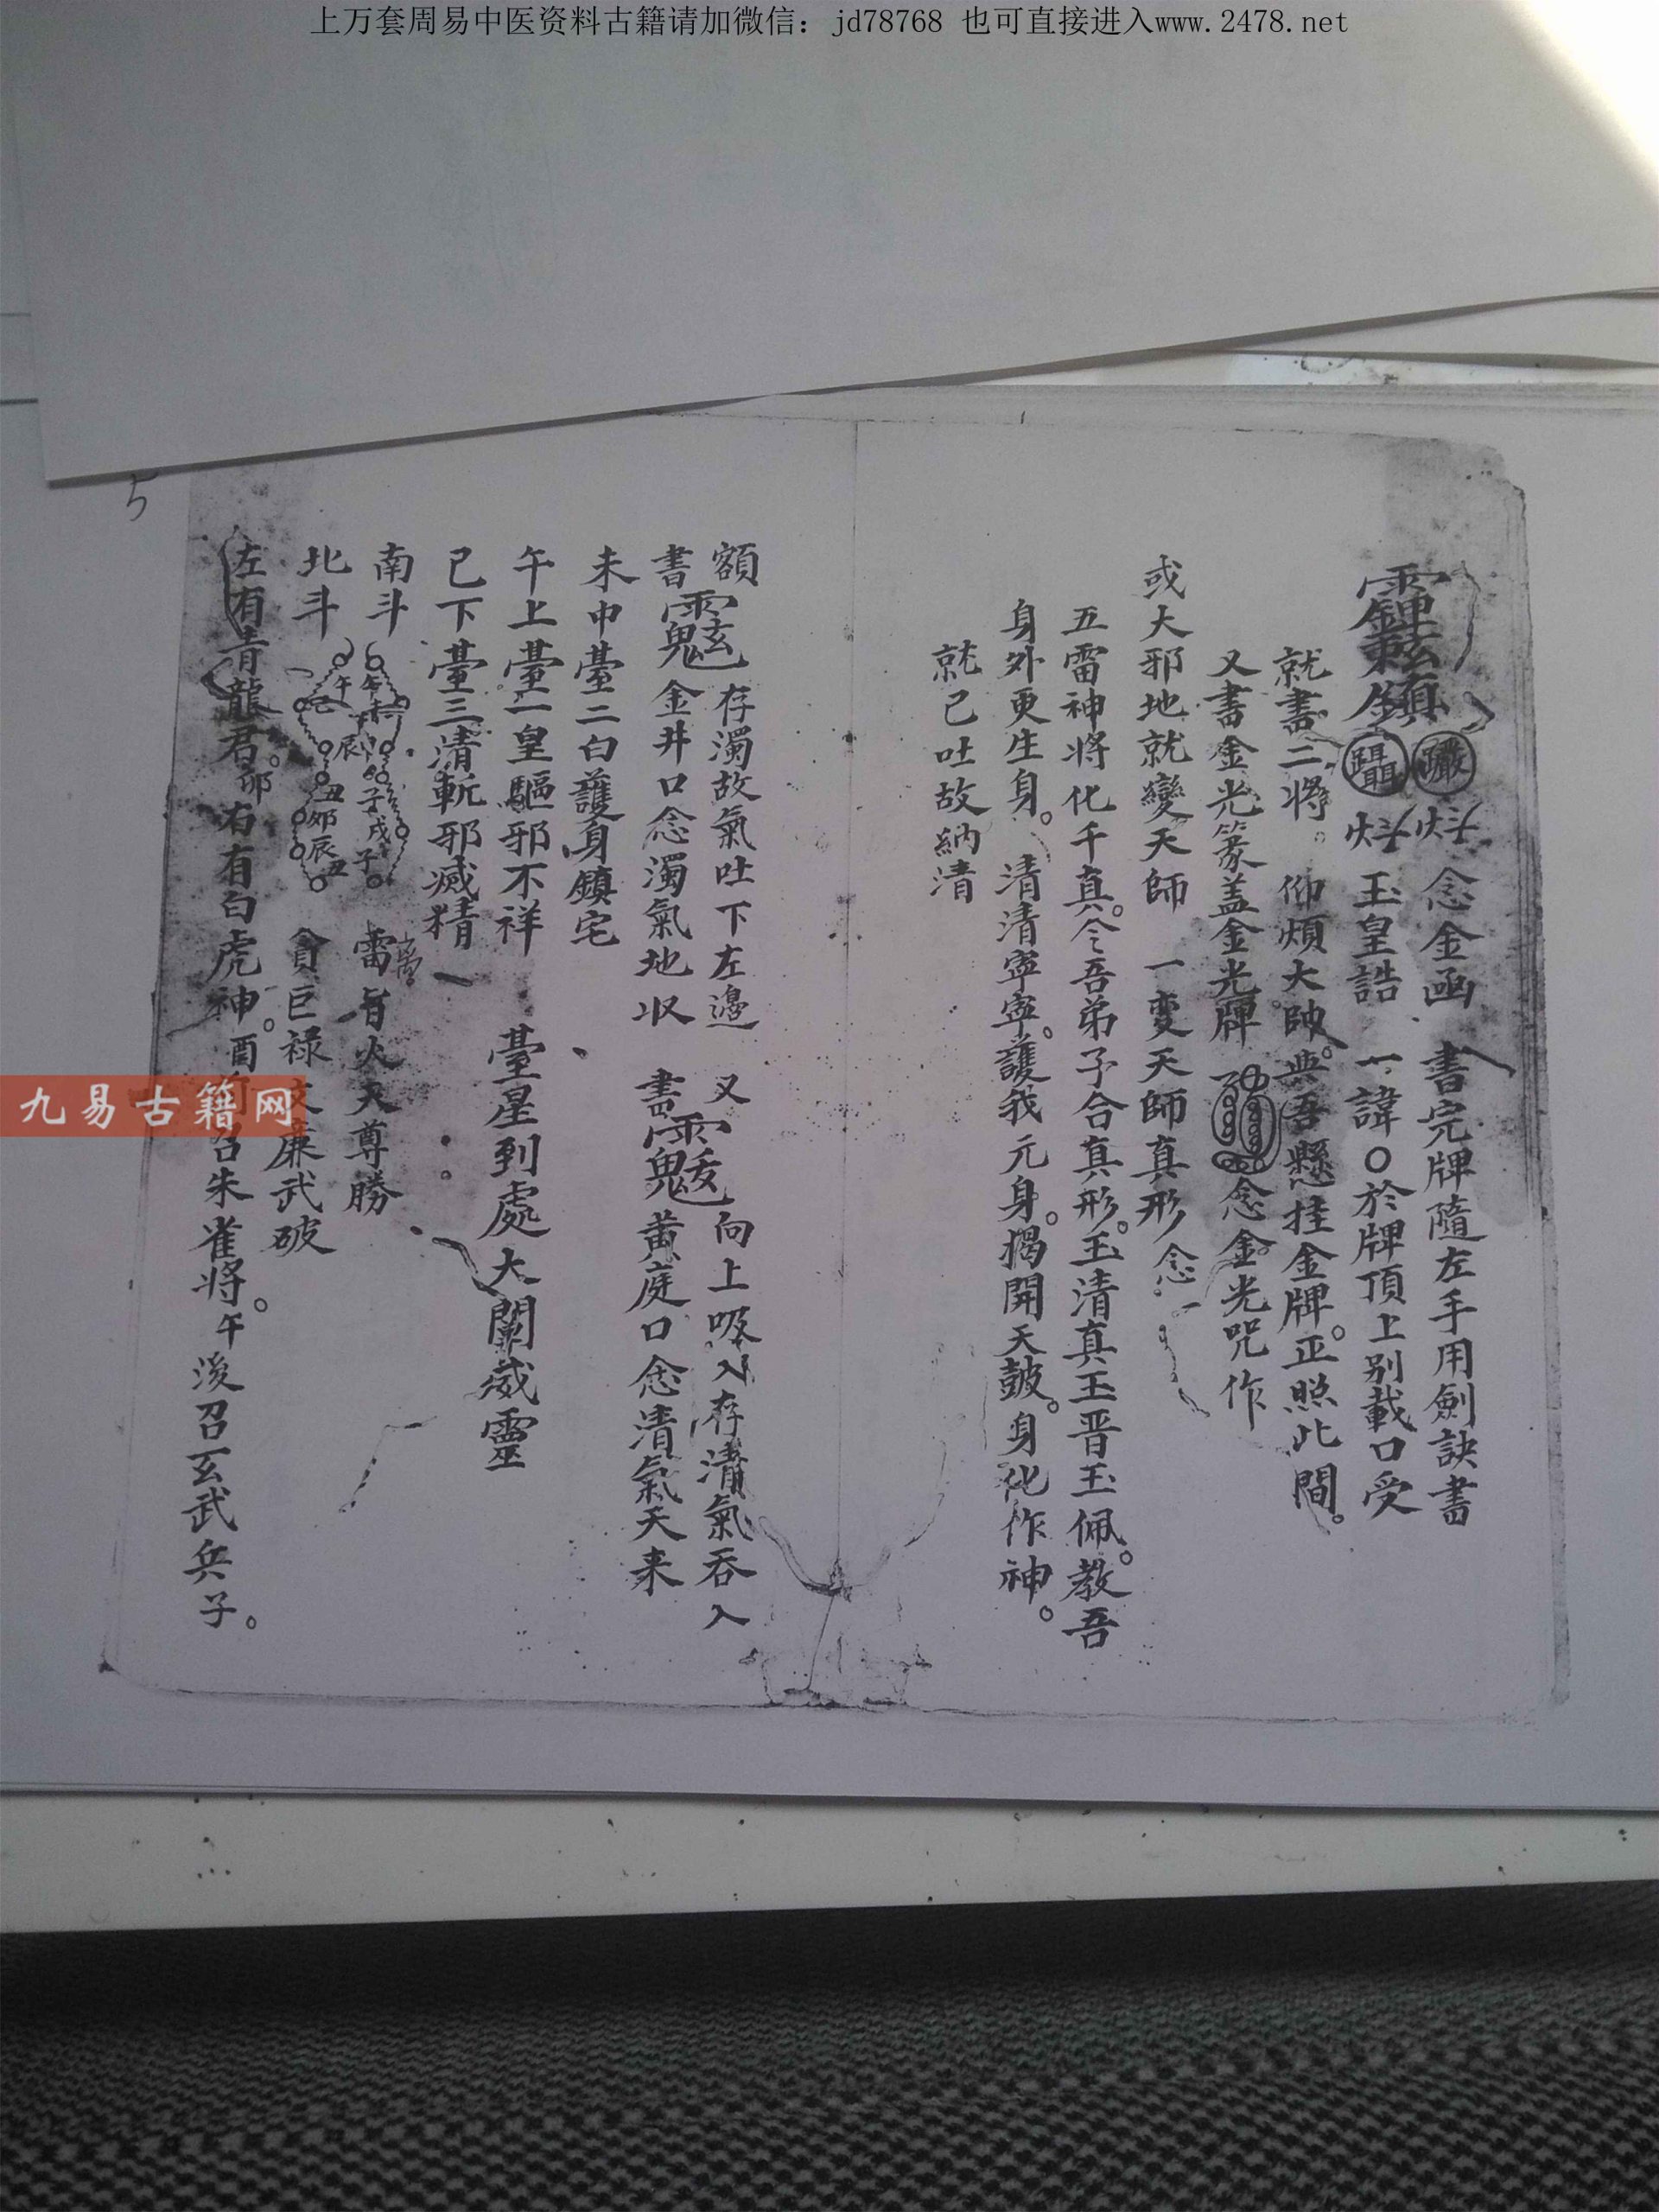 上万套周易中医资料古籍请加微信：jd78768 也可直接进入www.2478.net
5
念金函 書完牌隨左手用劍訣書
玉皇誥 一諱〇於牌頂上别載口受
就書二將。仰煩大帥。與吾懸挂金牌。正照此間。
又書金光篆盖金光牌 念金光咒作
或大邪地就變天師 一变天師真形念
五雷神將化千真。今吾弟子合真形。玉清真玉晋玉佩。教吾
身外更生身。清清寧寧。護我元身。揭開天皷。身化作神。
就已吐故納清
額 存濁故氣吐下左邊 又 向上吸入存清氣吞入
書 金井口念濁氣地收 書 黄庭口念清氣天来
未申臺二白護身鎮宅
午上臺一皇驅邪不祥 臺星到處大闡威靈
已下臺三清斬邪滅精
南斗 午未 辰 子戌子 雷 火天尊勝
北斗 午 丑卯辰丑 貪巨禄文廉武破
左有青龍君。卯右有白虎神。酉 召朱雀將。午後召玄武兵子。
九易古籍网